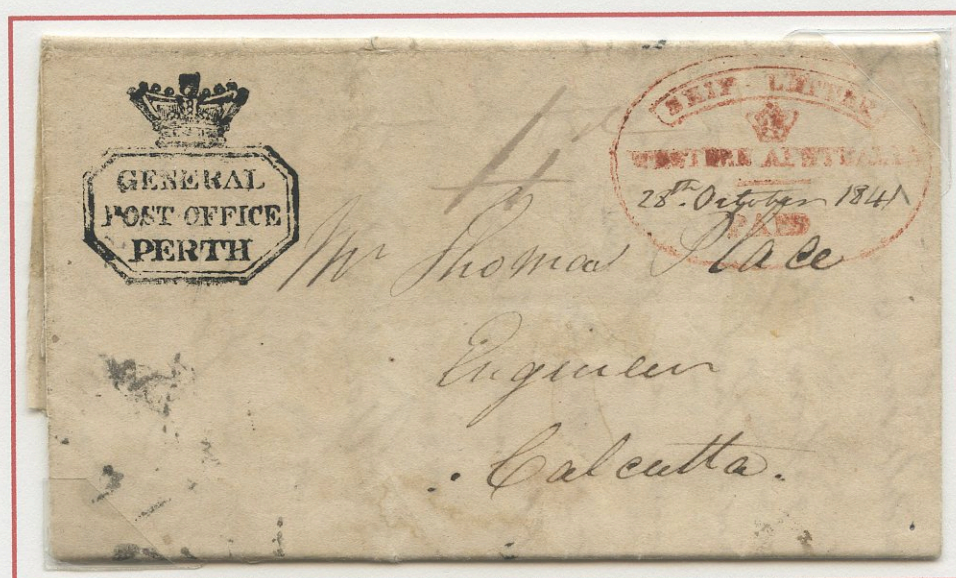 GENERAL
POST OFFICE
PERTH
SHIP LETTER
WESTERN AUSTRALIA
28th October 1841
PAID
Mr Thomas Place
Engineer
Calcutta.